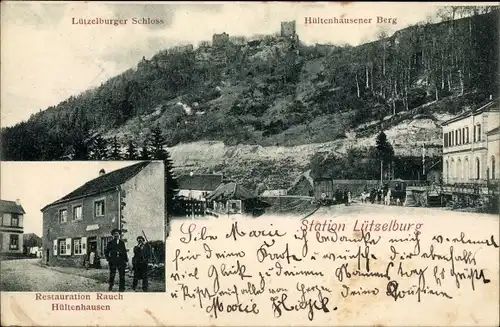 Lützelburger Schloss
Hültenhausener Berg
Station Lützelburg
Restauration Rauch
Hültenhausen
Liebe Marie ich bedanke mich vielmals
für deine Karte u wünsche dir ebenfalls
viel Glück zu deinem Namens tag es grüßt
u küßt dich
deine Cousine
Marie